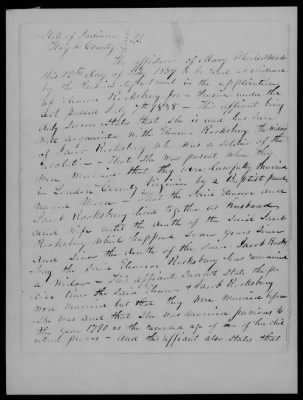 State of Indiana } ss
Wayd County }
The affidavit of Mary
this 12th day of 1839 to be used as evidence
by the Pension department in the application
of Eleanor Rooksbury for a Pension under the
Act passed July 7th 1838 - This affiant being
duly sworn states that she is and has been
well acquainted with Eleanor Rooksbury the widow
of Jacob Rooksbury who was a soldier of the
Revolution - That she was present when they
were married that they were lawfully married
in Loudon County Virginia by a Baptist preacher
named Moore - That the said Eleanor and
Jacob Rooksbury lived together as husband
and wife until the death of the said Jacob
Rooksbury which happened years since
And since the death of the said Jacob Rooks
bury the said Eleanor Rooksbury has remained
a widow - This affiant cannot state the pre
cise time the said Eleanor & Jacob Rooksbury
were married but that they were married before
she was and that she was married previous to
the year 1790 as the recorded age of one of her chil
dren proves - And this affiant also states that